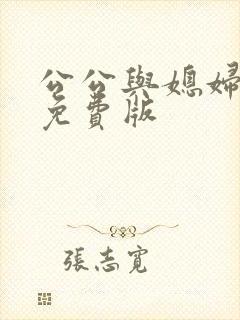 公公與媳婦
免費版
張志寬